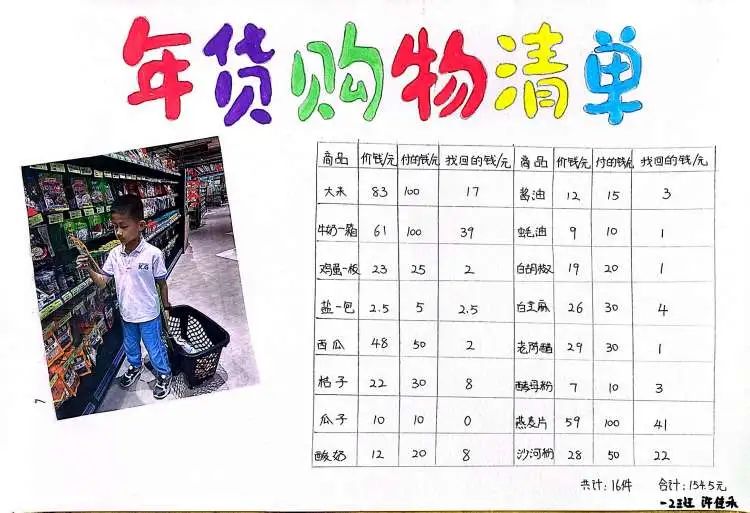 年货购物清单
商品 价钱/元 付的钱/元 找回的钱/元 商品 价钱/元 付的钱/元 找回的钱/元
大米 83 100 17 酱油 12 15 3
牛奶一箱 61 100 39 蚝油 9 10 1
鸡蛋一板 23 25 2 白胡椒 19 20 1
盐一包 2.5 5 2.5 白芝麻 26 30 4
西瓜 48 50 2 老陈醋 29 30 1
桔子 22 30 8 酵母粉 7 10 3
瓜子 10 10 0 燕麦片 59 100 41
酸奶 12 20 8 沙河粉 28 50 22
共计:16件 合计:154.5元
一2班